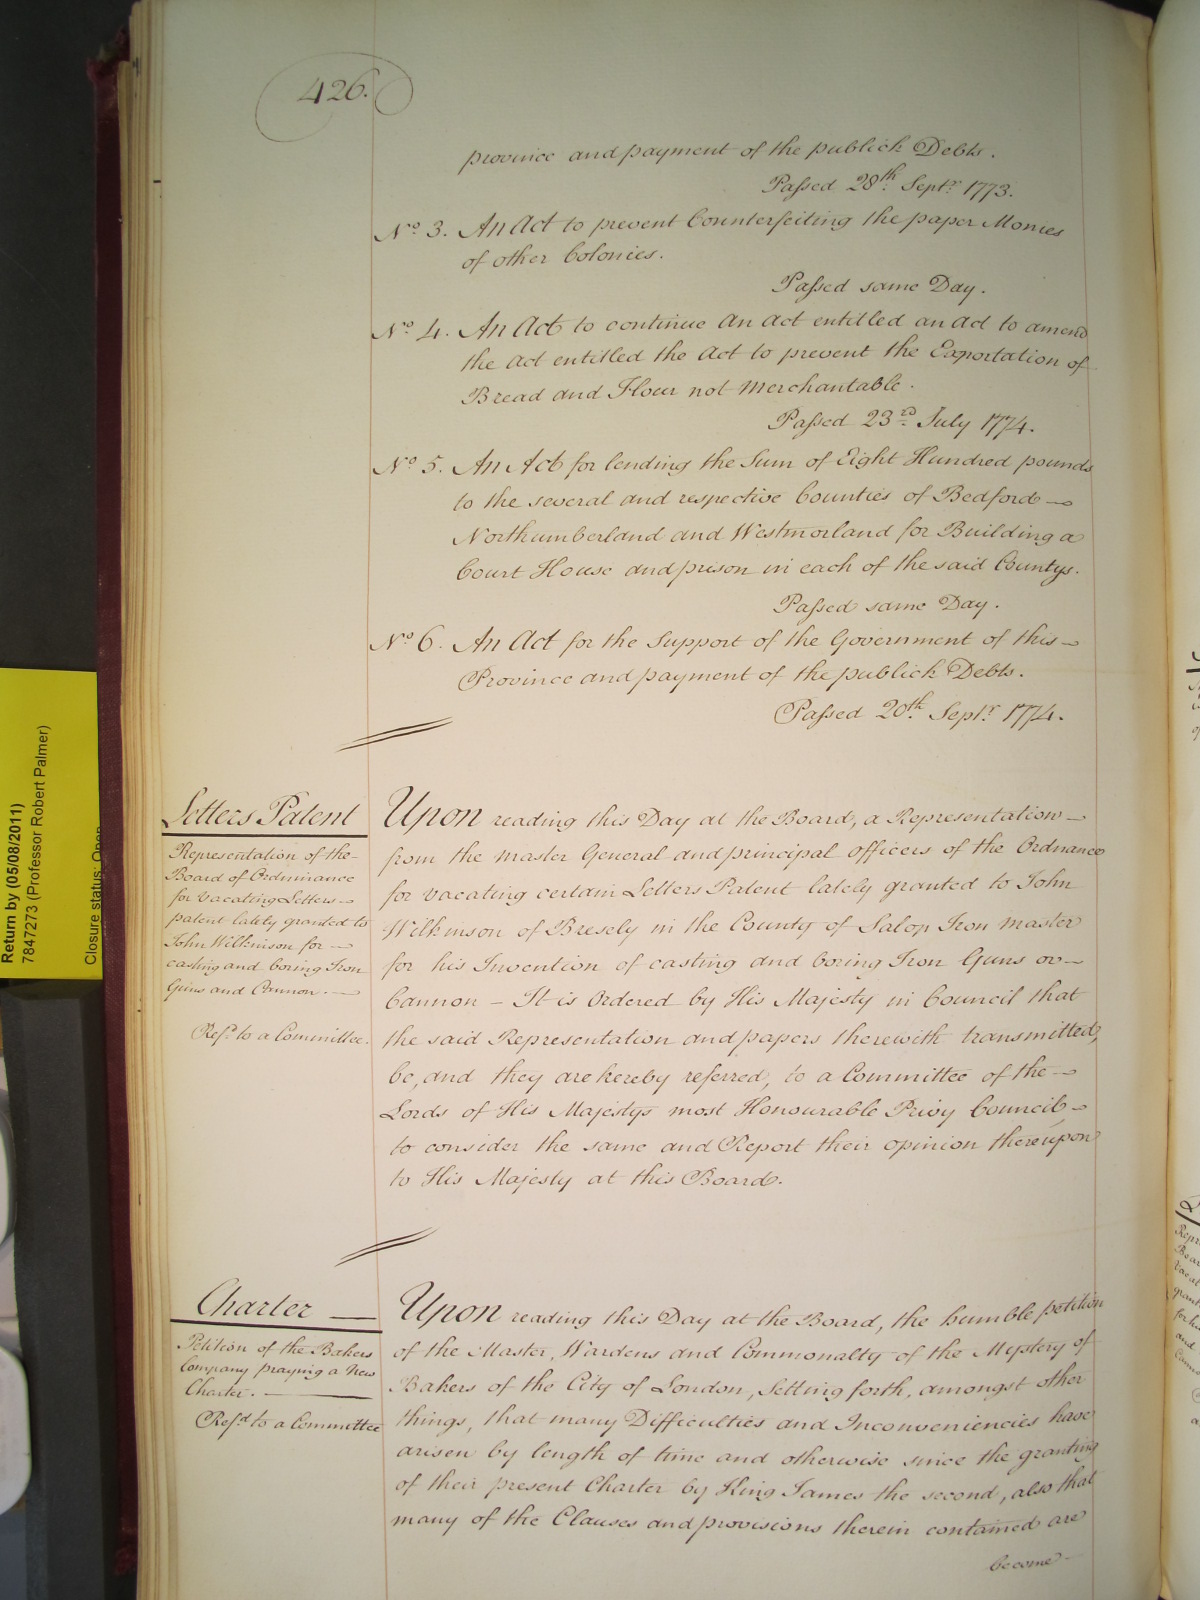 426.
province and payment of the publick Debts.
Passed 28th. Septr. 1773.
No. 3. An Act to prevent Counterfeiting the paper Monies
of other Colonies.
Passed same Day.
No. 4. An Act to continue an Act entitled an act to amend
the Act entitled the Act to prevent the Exportation of
Bread and Flour not Merchantable.
Passed 23d. July 1774.
No. 5. An Act for lending the Sum of Eight Hundred pounds
to the several and respective Counties of Bedford
Northumberland and Westmorland for Building a
Court House and prison in each of the said Countys.
Passed same Day.
No. 6. An Act for the Support of the Government of this
Province and payment of the publick Debts.
Passed 20th. Septr. 1774.
Letters Patent
Representation of the
Board of Ordinance
for vacating Letters
patent lately granted to
John Wilkinson for
casting and boring Iron
Guns and Cannon.
Refd. to a Committee.
Upon reading this Day at the Board, a Representation
from the Master General and principal officers of the Ordnance
for vacating certain Letters Patent lately granted to John
Wilkinson of Bresely in the County of Salop Iron master
for his Invention of casting and boring Iron Guns or
Cannon – It is Ordered by His Majesty in Council that
the said Representation and papers therewith transmitted,
be, and they are hereby referred, to a Committee of the
Lords of His Majestys most Honourable Privy Council
to consider the same and Report their opinion thereupon
to His Majesty at this Board.
Charter
Petition of the Bakers
Company praying a New
Charter.
Refd. to a Committee
Upon reading this Day at the Board, the humble petition
of the Master, Wardens and Commonalty of the Mystery of
Bakers of the City of London, Setting forth, amongst other
things, that many Difficulties and Inconveniencies have
arisen by length of time and otherwise since the granting
of their present Charter by King James the second, also that
many of the Clauses and provisions therein contained are
become
Return by (05/08/2011)
7847273 (Professor Robert Palmer)
Closure status: Open